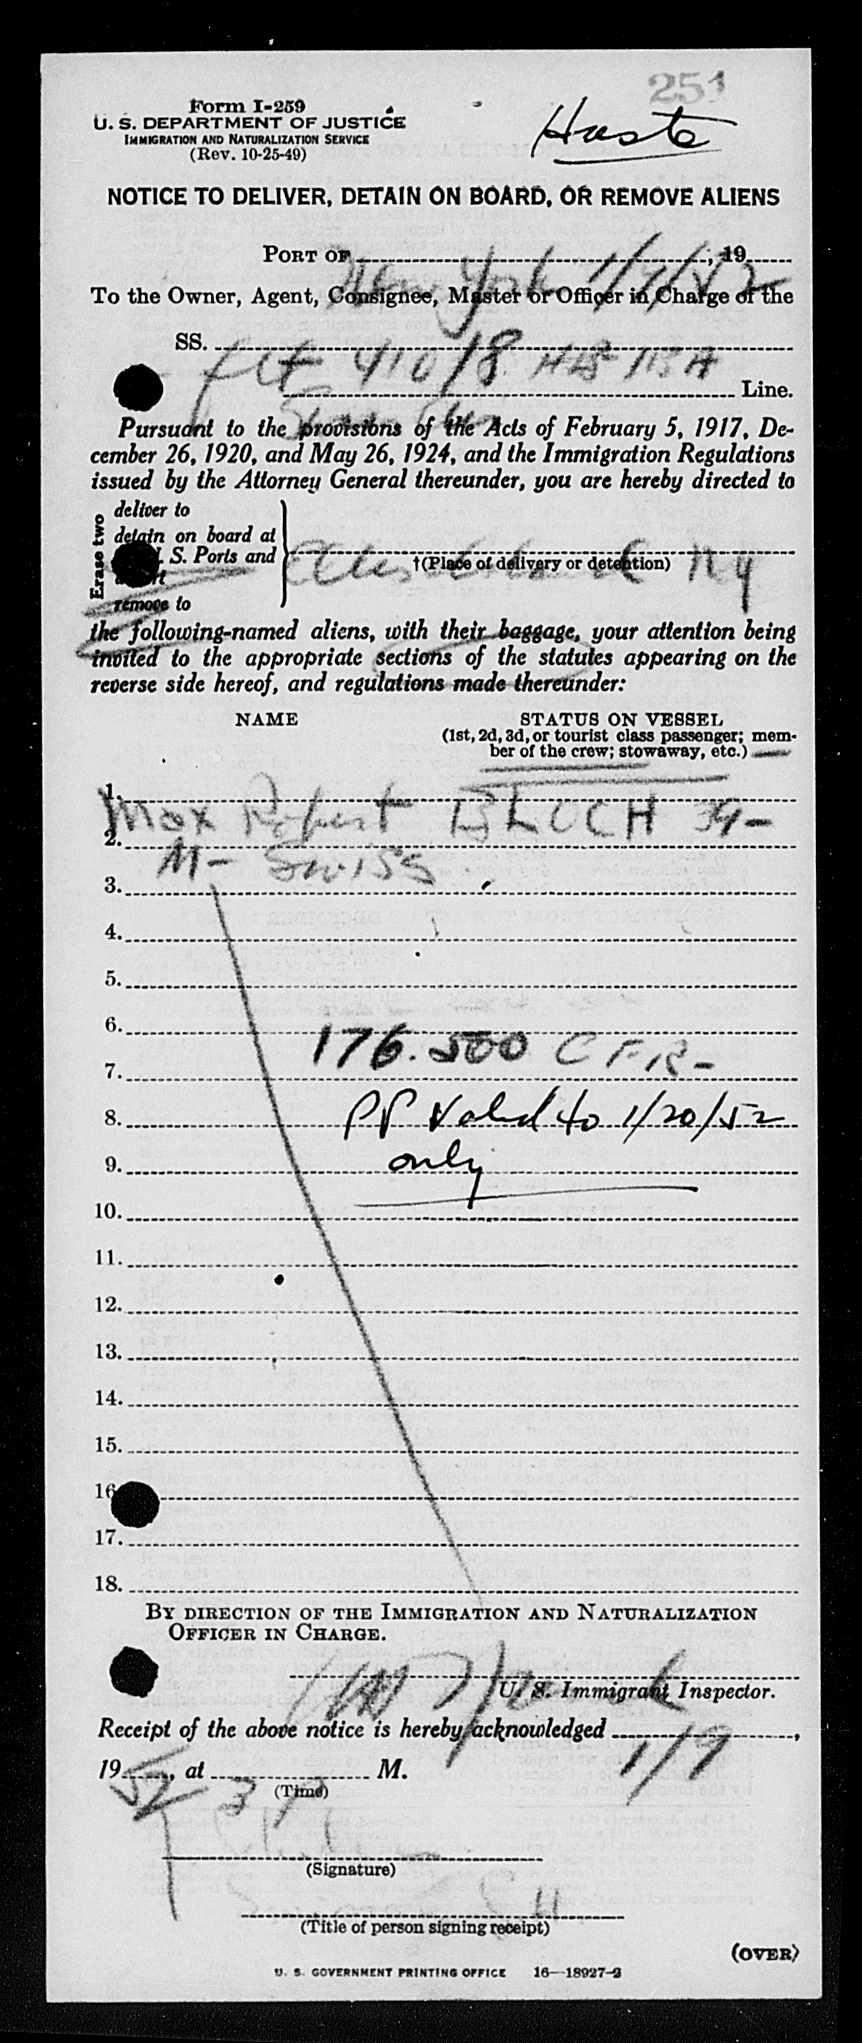 251
Form I-259
U. S. DEPARTMENT OF JUSTICE
IMMIGRATION AND NATURALIZATION SERVICE
(Rev. 10-25-49)
Haste
NOTICE TO DELIVER, DETAIN ON BOARD, OR REMOVE ALIENS
PORT OF New York 1/9/52, 19
To the Owner, Agent, Consignee, Master or Officer in Charge of the
SS. flt 410/8
Line.
Pursuant to the provisions of the Acts of February 5, 1917, De-
cember 26, 1920, and May 26, 1924, and the Immigration Regulations
issued by the Attorney General thereunder, you are hereby directed to
Erase two
deliver to
detain on board at
S. Ports and
remove to
Ellis Island N y
†(Place of delivery or detention)
the following-named aliens, with their baggage, your attention being
invited to the appropriate sections of the statutes appearing on the
reverse side hereof, and regulations made thereunder:
NAME STATUS ON VESSEL
(1st, 2d, 3d, or tourist class passenger; mem-
ber of the crew; stowaway, etc.)
1.
Max Robert BLOCH 39-
2.
M- Swiss
3.
4.
5.
6.
176.500 CFR-
7.
8. PP Valid to 1/20/52
9. only
10.
11.
12.
13.
14.
15.
16
17.
18.
BY DIRECTION OF THE IMMIGRATION AND NATURALIZATION
OFFICER IN CHARGE.
U. S. Immigrant Inspector.
Receipt of the above notice is hereby acknowledged 1/9,
19 52, at 3 P M.
(Time)
(Signature)
(Title of person signing receipt)
(OVER)
U. S. GOVERNMENT PRINTING OFFICE 16—18927-2